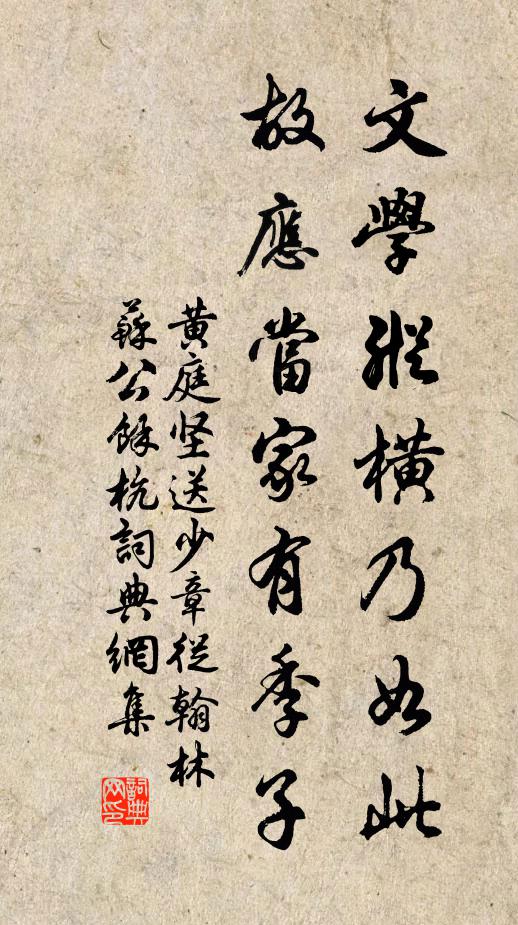 文學縱橫乃如此
故應當家有季子
黃庭坚送少章從翰林
蘇公餘杭詞典網集
詞典网印